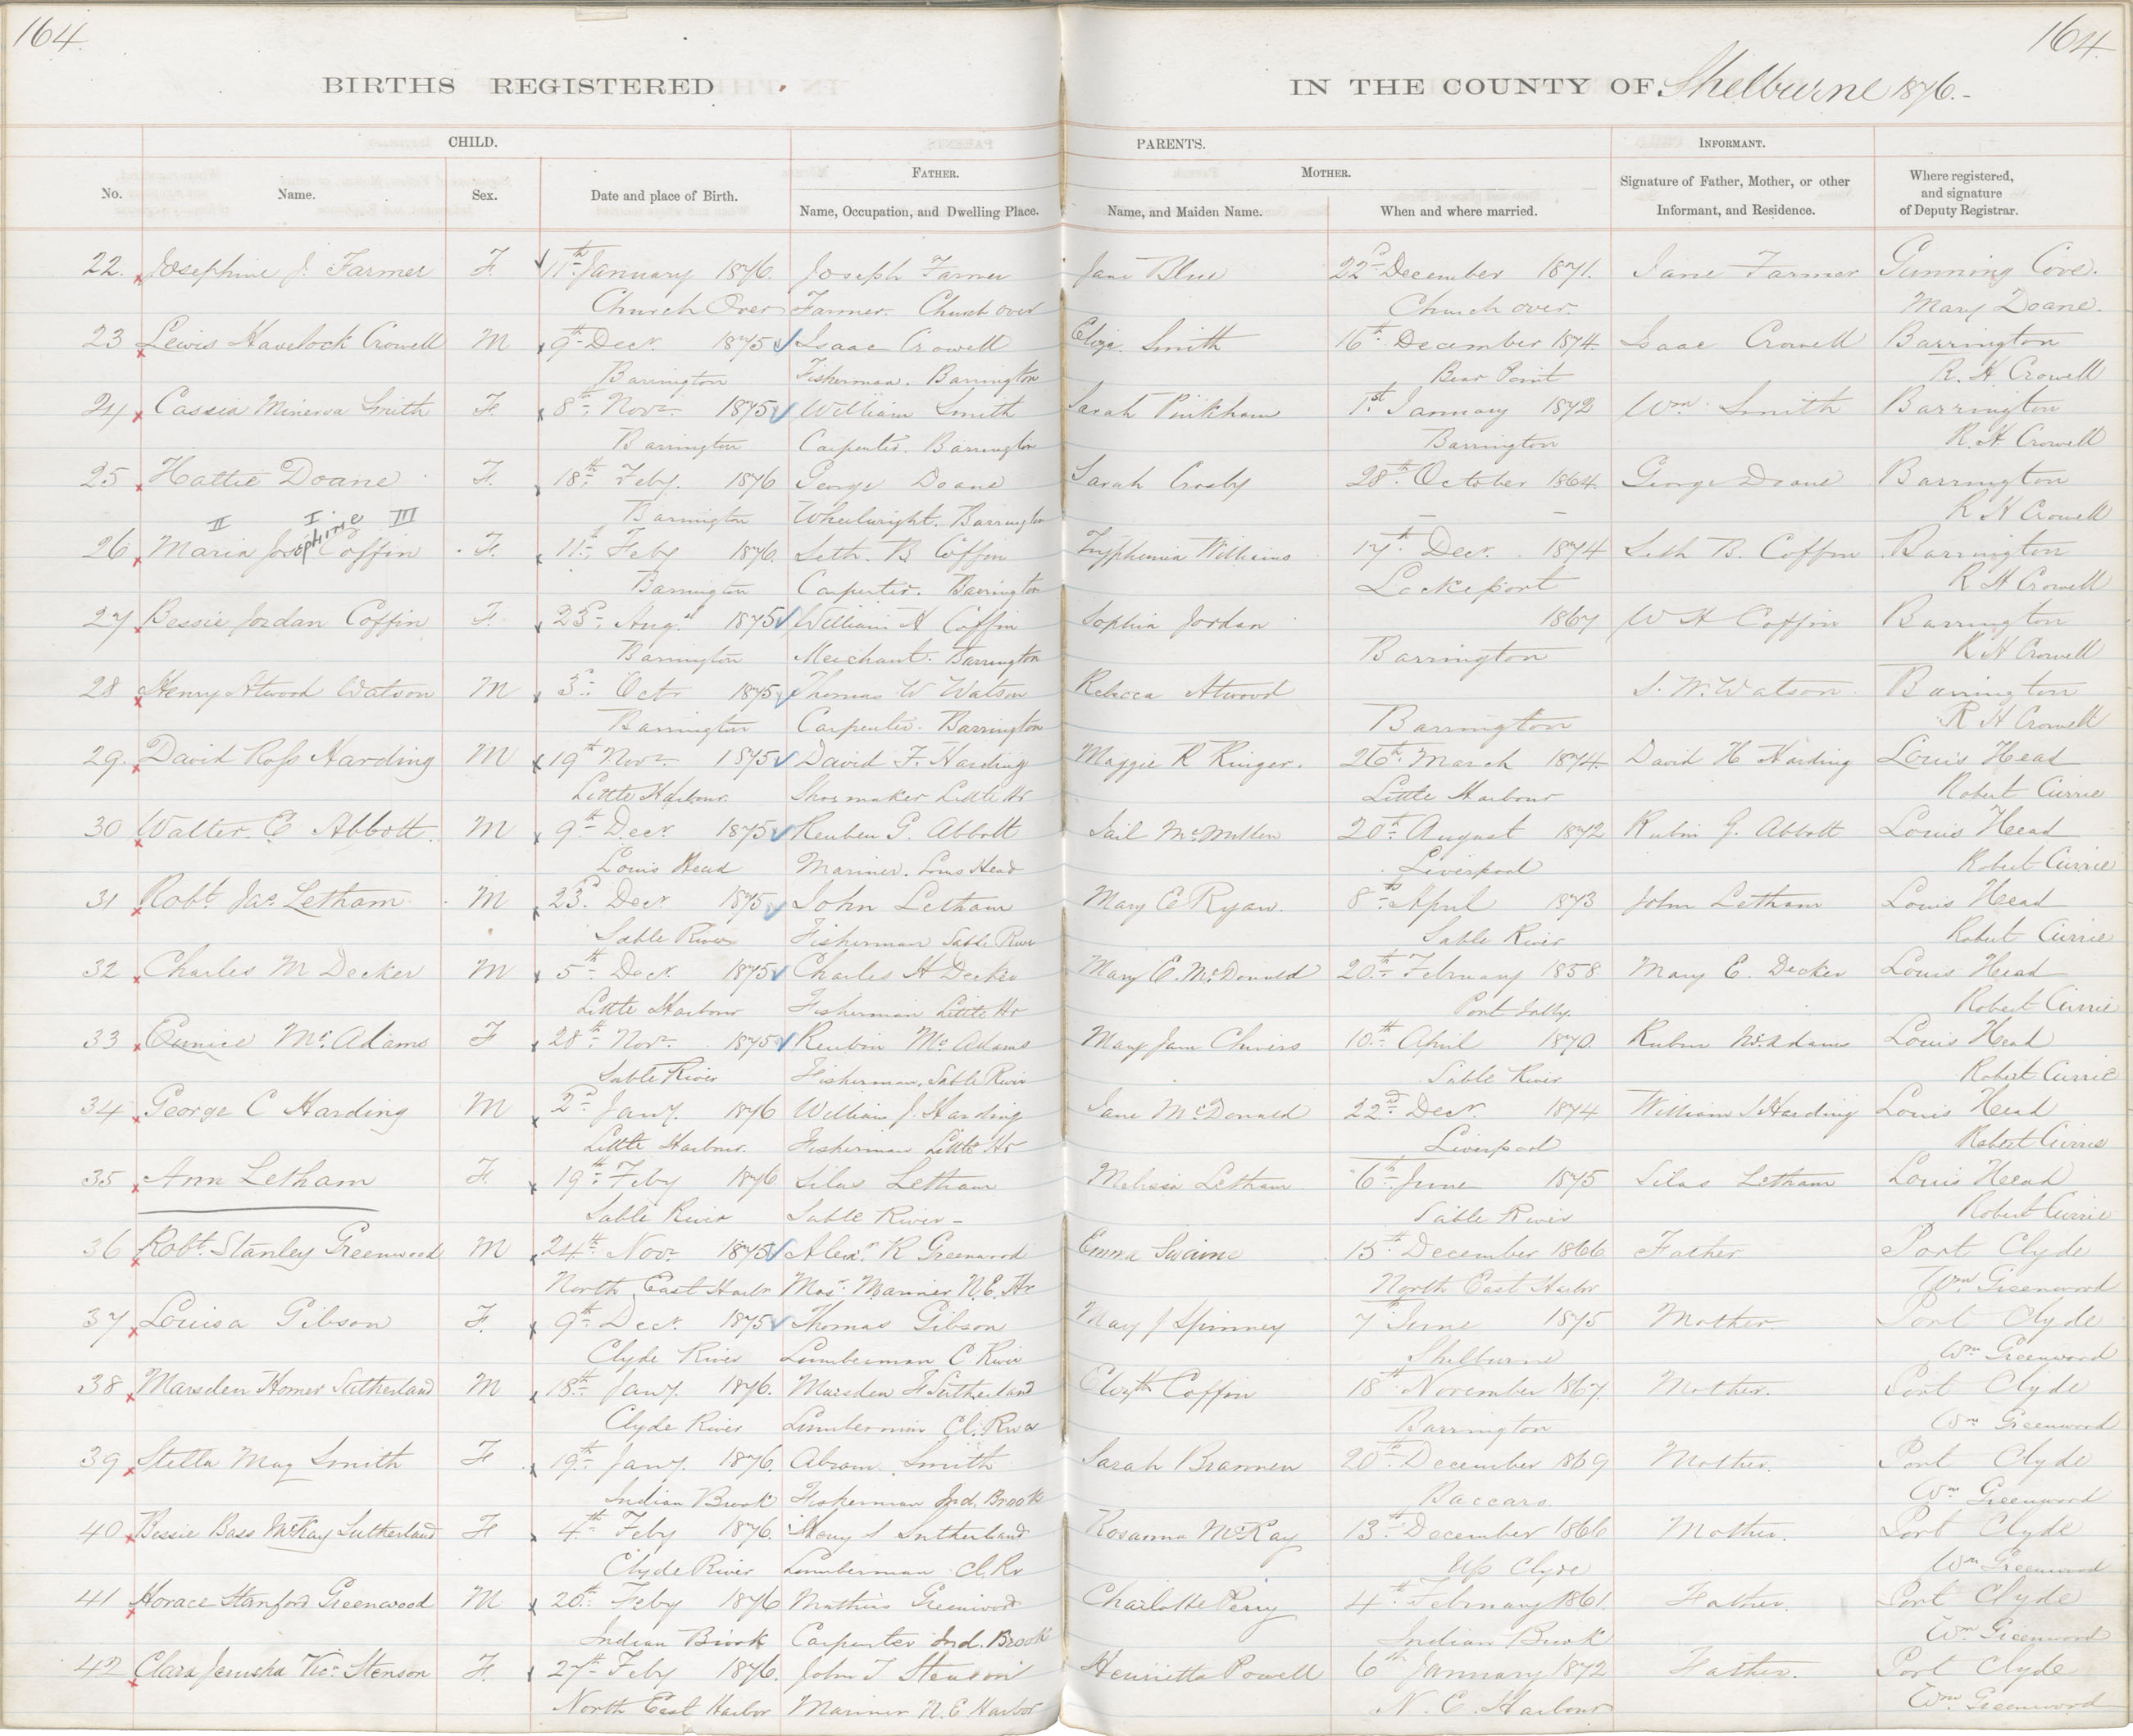 164.
164.
BIRTHS REGISTERED
IN THE COUNTY OF Shelburne 1876.-
CHILD.
PARENTS.
INFORMANT.
No.
Name.
Sex.
Date and place of Birth.
FATHER.
Name, Occupation, and Dwelling Place.
MOTHER.
Name, and Maiden Name.
When and where married.
Signature of Father, Mother, or other
Informant, and Residence.
Where registered,
and signature
of Deputy Registrar.
22. Josephine J. Farmer F. 11th January 1876. Joseph Farmer Jane Blue 22d December 1871. Jane Farmer Gunning Cove.
Church Over Farmer. Church over Church over. Mary Doane.
23 Lewis Havelock Crowell M 9th Decr. 1875 Isaac Crowell Eliza. Smith 16th December 1874. Isaac Crowell Barrington
Barrington Fisherman. Barrington Bear Point R. H. Crowell
24 Cassia Minerva Smith F. 8th Novr. 1875 William Smith Sarah Pinkham 1st January 1872 Wm. Smith Barrington
Barrington Carpenter. Barrington Barrington R. H. Crowell
25 Hattie Doane F. 18th Feby. 1876 George Doane Sarah Crosby 28th October 1864. George Doane Barrington
Barrington Wheelwright. Barrington – – R H Crowell
II I. III
26 Maria Josephine Coffin F. 11th Feby 1876. Seth. B. Coffin Tryphenia Williams 17th Decr. 1874 Seth B. Coffin Barrington
Barrington Carpenter. Barrington Lockeport R H Crowell
27 Bessie Jordan Coffin F. 23d Augt 1875 William H Coffin Sophia Jordan 1867 W H Coffin Barrington
Barrington Merchant. Barrington Barrington R H Crowell
28 Henry Atwood Watson M 3d Octr 1875 Thomas W Watson Rebecca Atwood W. Watson Barrington
Barrington Carpenter. Barrington Barrington R H Crowell
29. David Ross Harding M 19th Novr. 1875 David F. Harding Maggie R Ringer. 26th March 1874. David H Harding Louis Head
Little Harbour. Shoemaker Little Hr Little Harbour Robert Currie
30 Walter. E Abbott. M 9th Decr. 1875 Reuben G. Abbott McMillen 20th August 1872 Rubin G. Abbott Louis Head
Louis Head Mariner. Louis Head Liverpool Robert Currie
31 Robt. Jas. Letham M 23d Decr 1875 John Letham Mary E Ryan. 8th April 1873 John Letham Louis Head
Sable River Fisherman Sable River Sable River Robert Currie
32 Charles M Decker M 5th Decr. 1875 Charles H Decker Mary E. McDonald 20th February 1858 Mary E. Decker Louis Head
Little Harbour Fisherman Little Hr Port Robert Currie
33 Eunice McAdams F 28th Novr. 1875 Reubin McAdams Mary Jane Chivers 10th April 1870. Rubin McAdams Louis Head
Sable River Fisherman. Sable River Sable River Robert Currie
34 George C Harding M 2d Jany. 1876 William J. Harding Jane McDonald 22nd Decr. 1874 William J Harding Louis Head
Little Harbour. Fisherman Little Hr Liverpool Robert Currie
35 Ann Letham F. 19th Feby 1876 Silas Letham Melissa Letham 6th June 1875 Silas Letham Louis Head
Sable River Sable River – Sable River Robert Currie
36 Robt. Stanley Greenwood M 24th Novr. 1875 Alexr. R Greenwood Emma Swaine 15th December 1866 Father Port Clyde
North East Harbr Mar. Mariner N. E. Hr North East Harbr Wm. Greenwood
37 Louisa Gibson F. 9th Decr. 1875 Thomas Gibson Mary J Spinney 7 June 1875 Mother. Port Clyde
Clyde River Lumberman C. River Shelburne Wm Greenwood
38 Marsden Homer Sutherland M 18th Jany. 1876. Marsden F Sutherland Coffin 18th November 1867. Mother. Port Clyde
Clyde River Lumberman Cl. River Barrington Wm Greenwood
39 Stella May Smith F 19th Jany. 1876. Abram. Smith Sarah Brannen 20th December 1869 Mother. Port Clyde
Indian Brook Fisherman Ind. Brook Baccaro Wm Greenwood
40 Bessie Bass McKay Sutherland F 4th Feby 1876. Henry S Sutherland Rosanna McKay 13th December 1866 Mother. Port Clyde
Clyde River Lumberman Cl. Rr Up Clyde Wm Greenwood
41 Horace Stanford Greenwood M 20th Feby 1876 Greenwood Charlotte Perry 4th February 1861. Father. Port Clyde
Indian Brook Carpenter Ind. Brook Indian Brook Wm. Greenwood
42 Clara Jerusha Vic. Stenson F. 27th Feby 1876. John T Stenson Henrietta Powell 6th January 1872 Father. Port Clyde
North East Harbor Mariner N. E Harbor N. E. Harbour Wm Greenwood